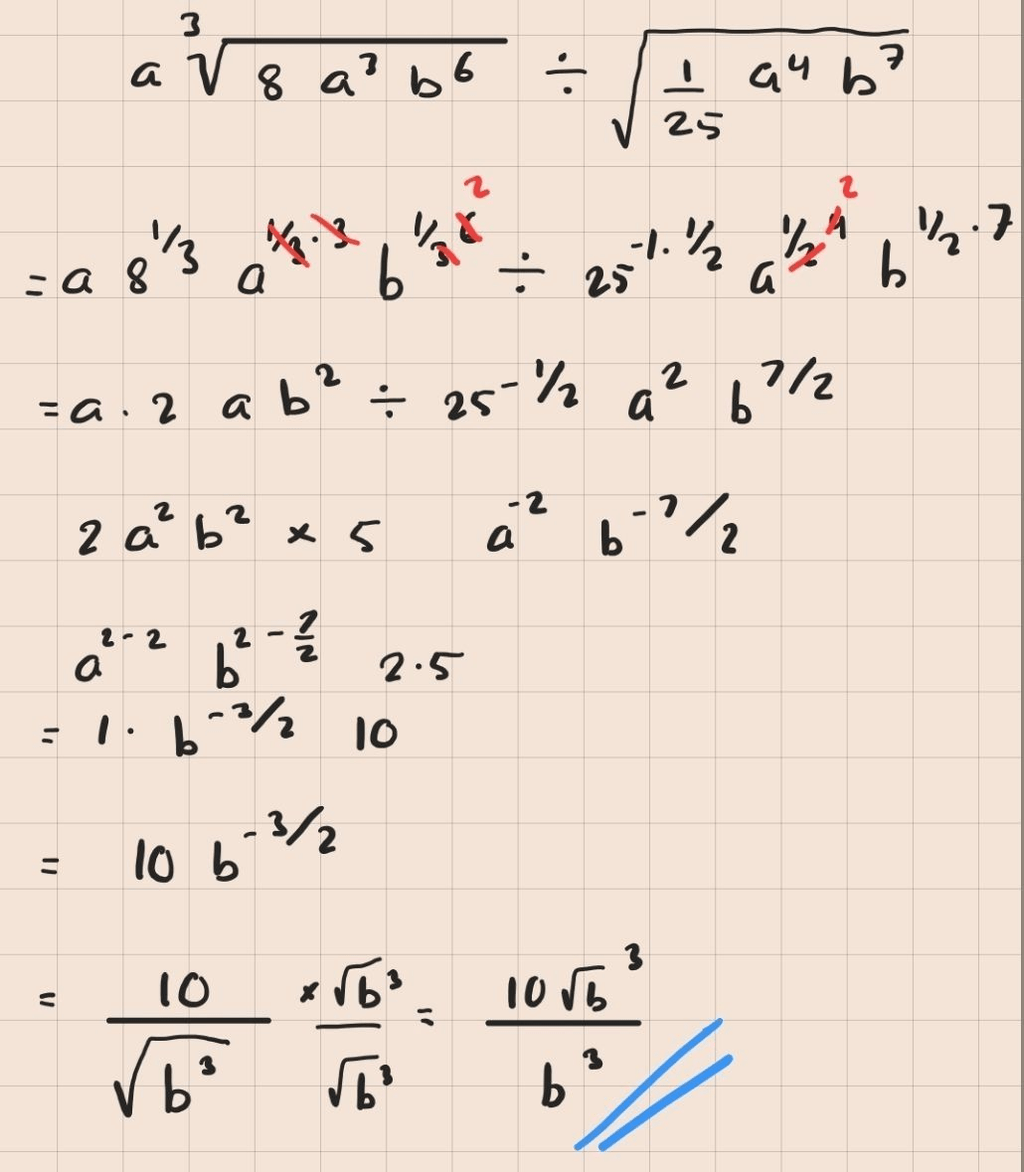 a ∛(8 a³ b⁶) ÷ √(1/25 a⁴ b⁷)
= a 8^(1/3) a^(1/3 · 3) b^(1/3 6) 2 ÷ 25^(-1 · 1/2) a^(1/2 4) 2 b^(1/2 · 7)
= a · 2 a b² ÷ 25^(-1/2) a² b^(7/2)
2 a² b² × 5 a^(-2) b^(-7/2)
a^(2-2) b^(2-7/2) 2·5
= 1 · b^(-3/2) 10
= 10 b^(-3/2)
= 10/√(b³) × √b³/√b³ = 10√b³/b³